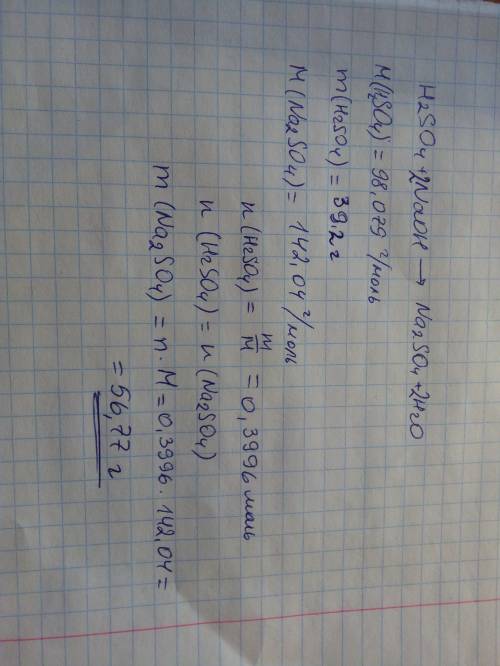 H₂SO₄ + 2NaOH → Na₂SO₄ + 2H₂O
M(H₂SO₄) = 98,079 г/моль
m(H₂SO₄) = 39,2 г
M(Na₂SO₄) = 142,04 г/моль
n(H₂SO₄) = m/M = 0,3996 моль
n(H₂SO₄) = n(Na₂SO₄)
m(Na₂SO₄) = n·M = 0,3996·142,04 =
= 56,77 г